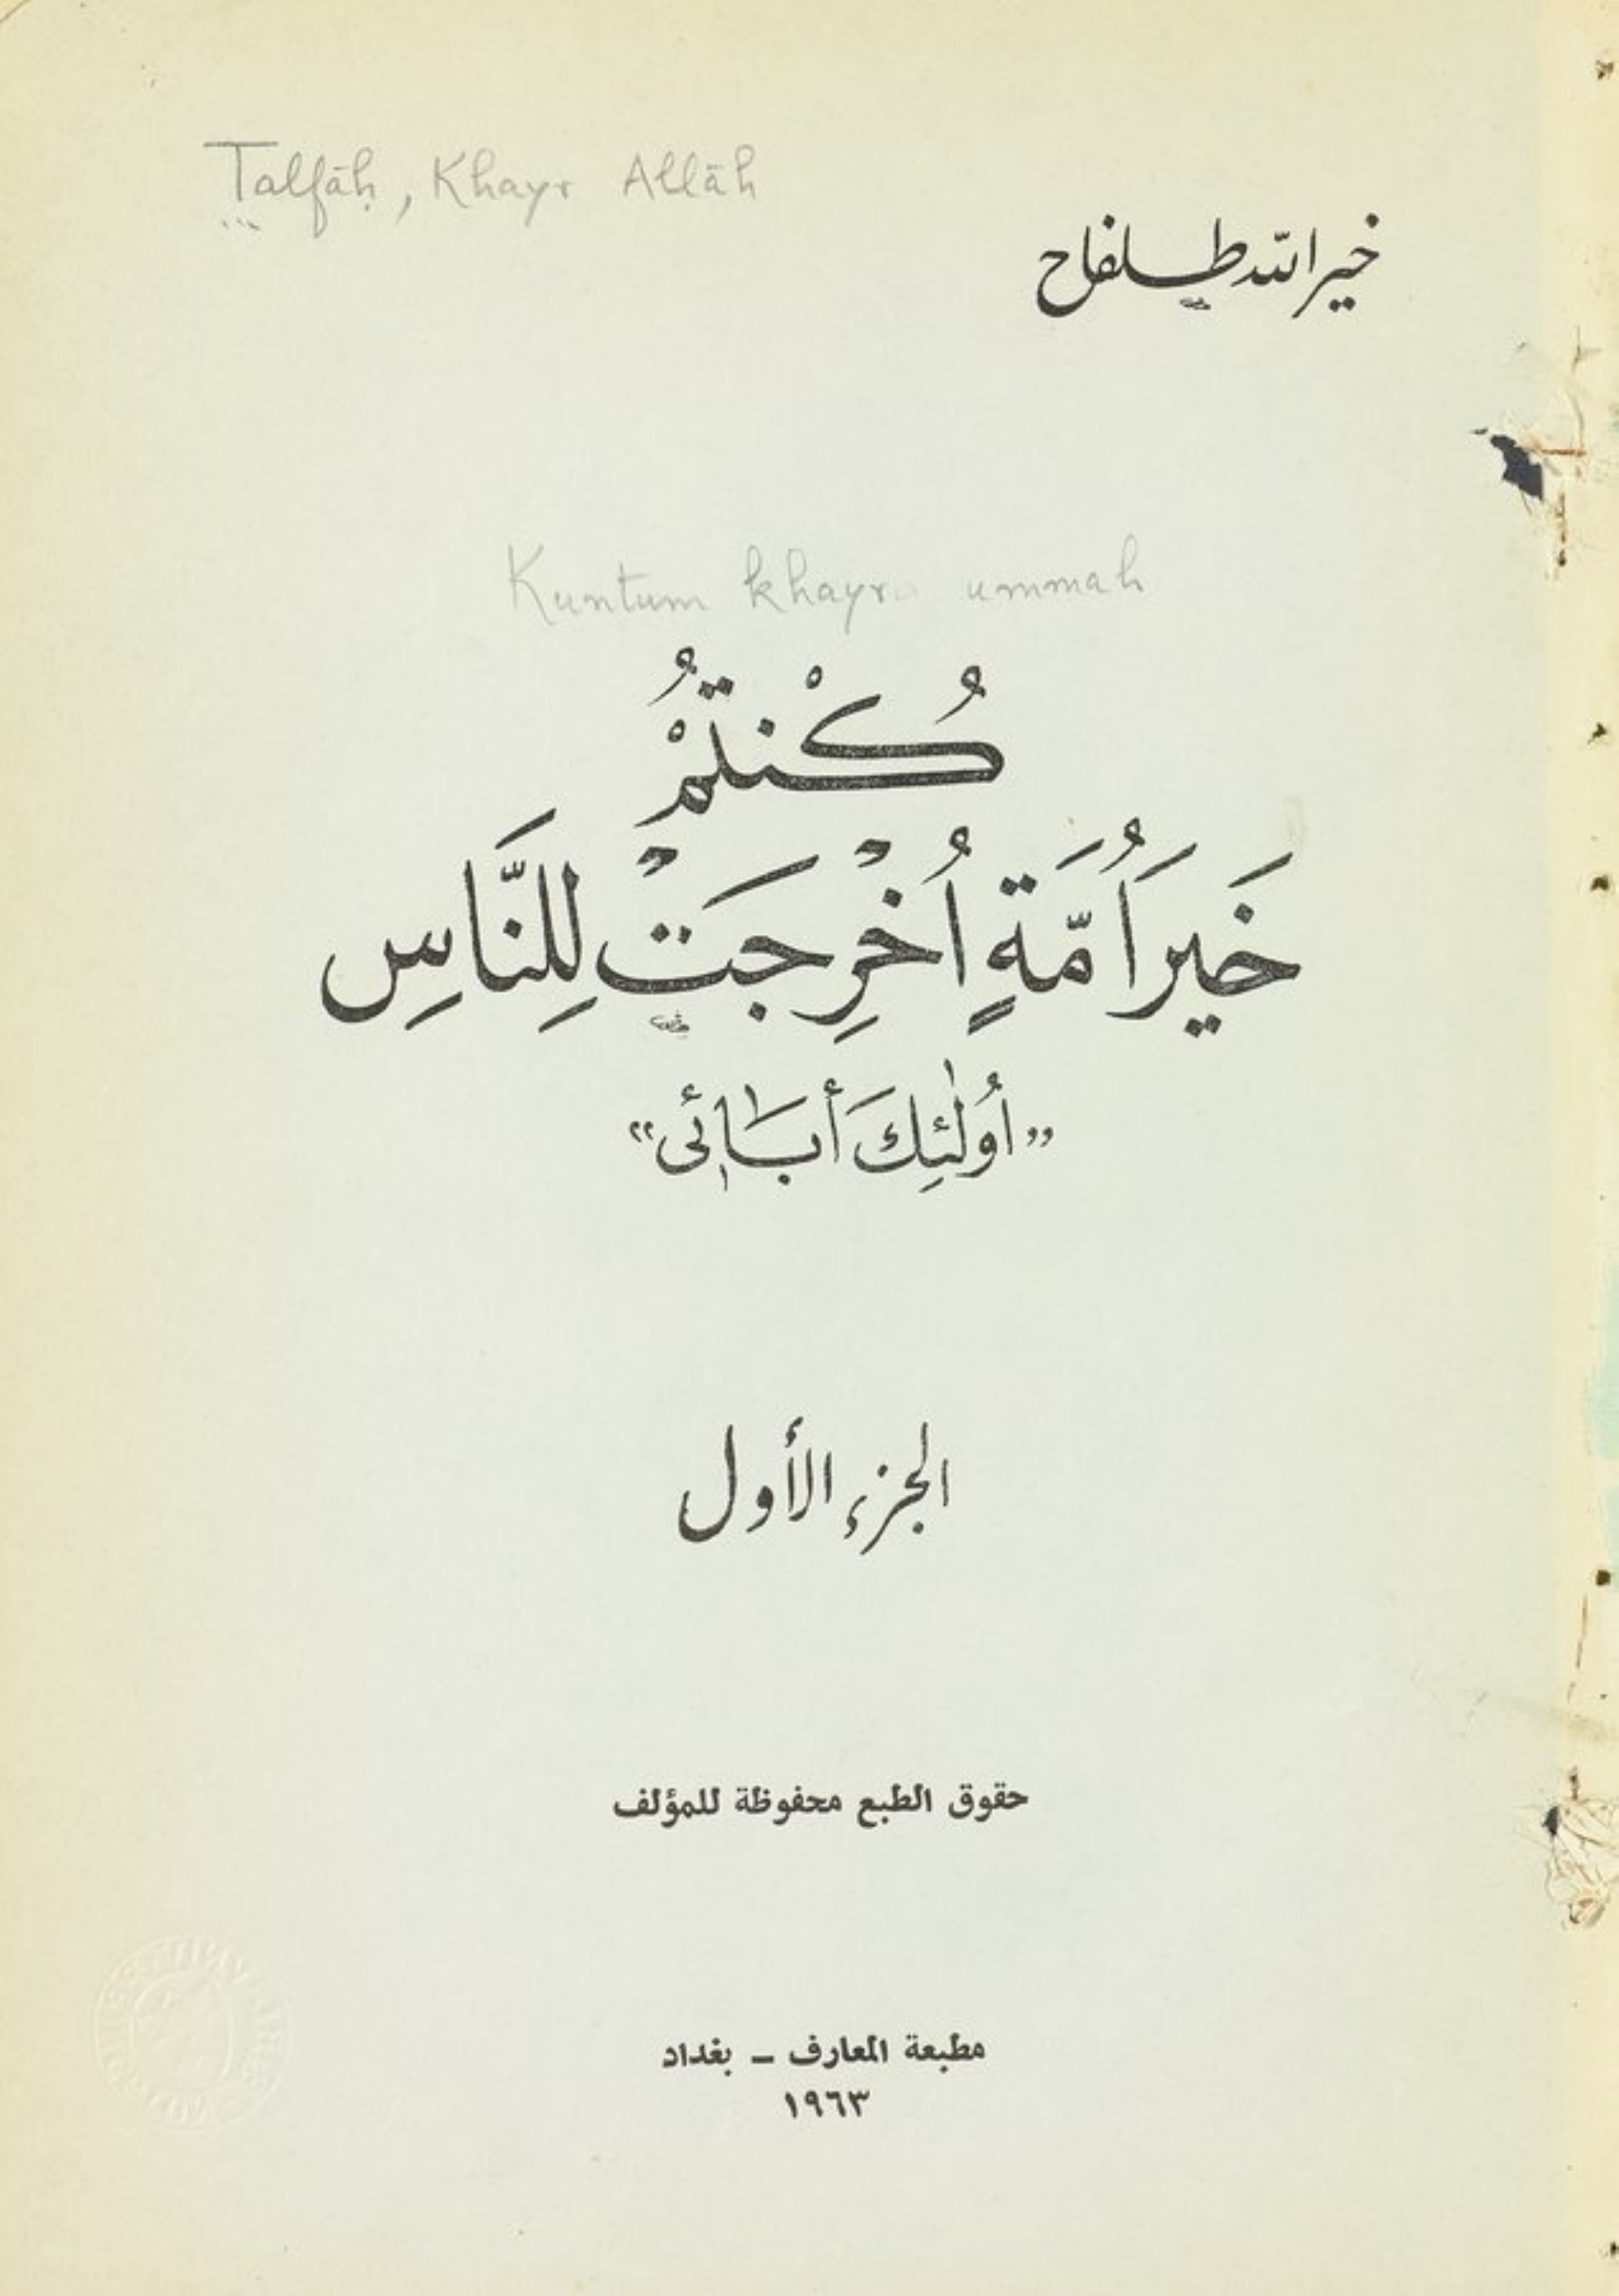 Talfāḥ, Khayr Allāh
خير الله طلفاح
Kuntum khayra ummah
كُنْتُمْ
خَيرَ أُمَّةٍ أُخْرِجَتْ لِلنَّاسِ
„أُولٰئِكَ أبَائي“
الجزء الأول
حقوق الطبع محفوظة للمؤلف
مطبعة المعارف – بغداد
١٩٦٣